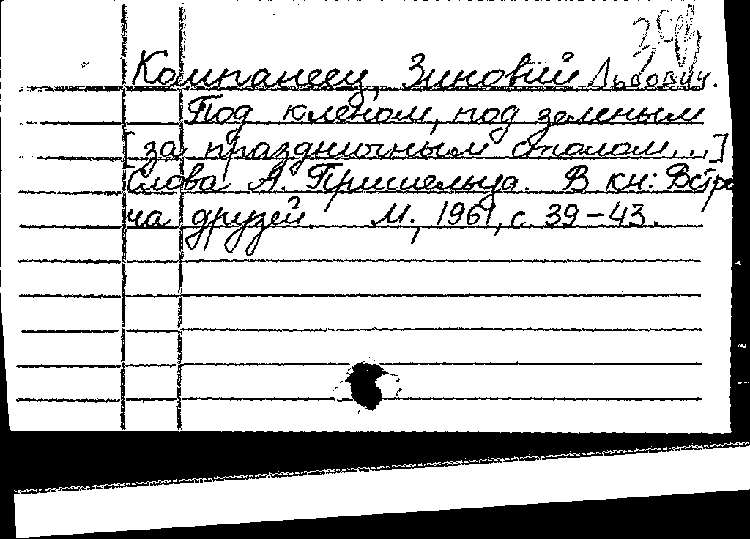 Компанеец, Зиновий Львович.
Под кленом, под зеленым
[за праздничным столом...]
Слова А. Пришельца. В кн: Встре
ча друзей. М., 1961, с. 39-43.